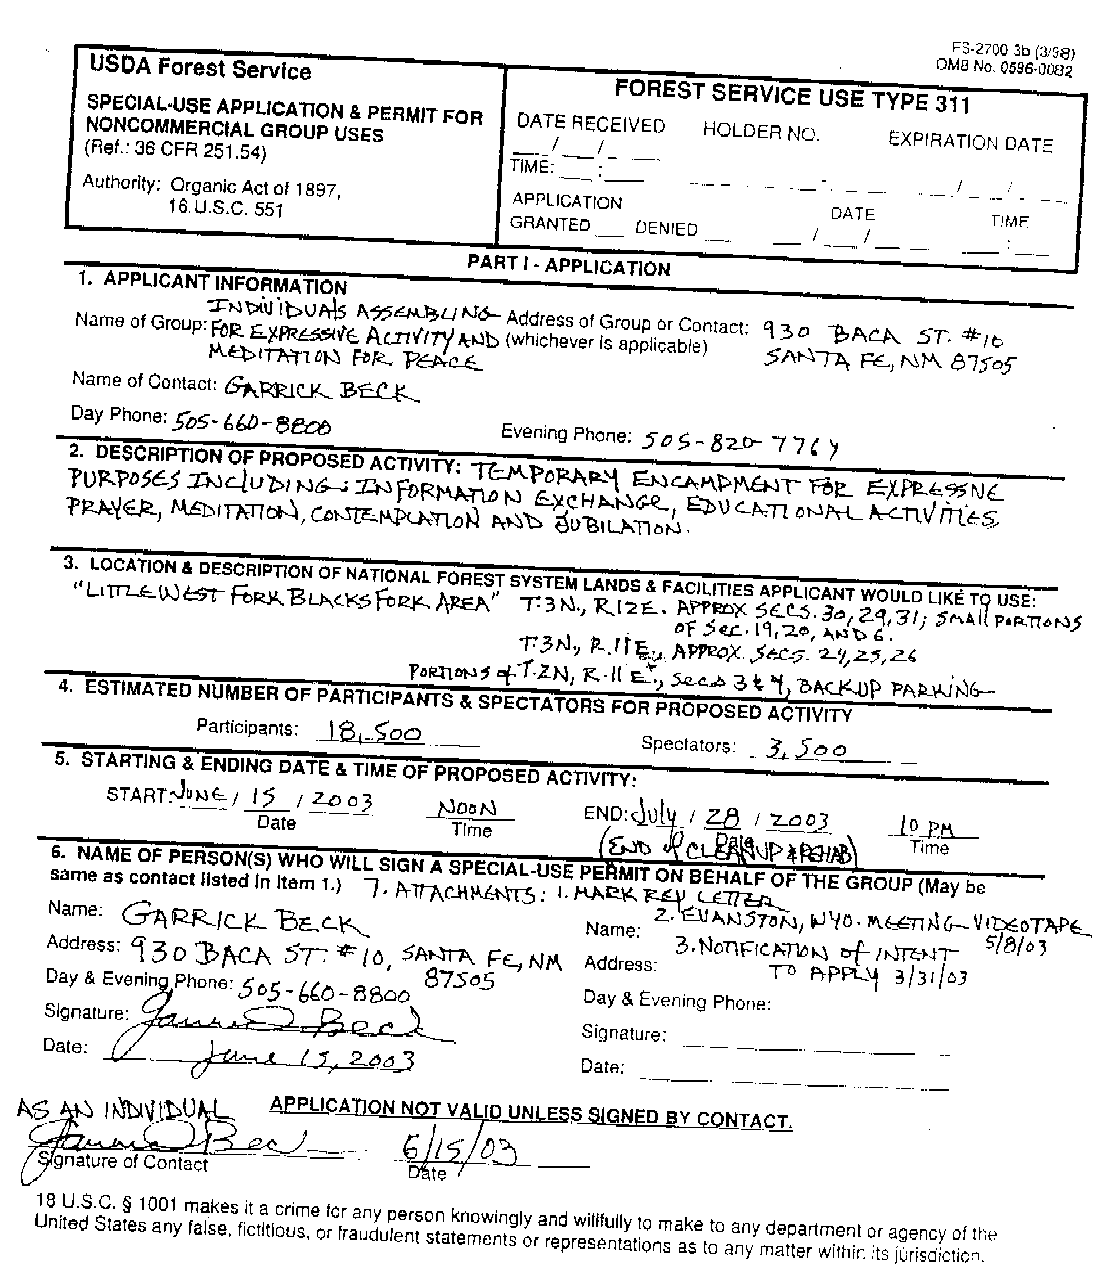 FS-2700 3b (3/98)
OMB No. 0596-0082
USDA Forest Service
SPECIAL-USE APPLICATION & PERMIT FOR
NONCOMMERCIAL GROUP USES
(Ref.: 36 CFR 251.54)
Authority: Organic Act of 1897,
16.U.S.C. 551
FOREST SERVICE USE TYPE 311
DATE RECEIVED HOLDER NO. EXPIRATION DATE
__/__/__
TIME: __:__
APPLICATION DATE TIME
GRANTED __ DENIED __ __/__/__ __:__
PART I - APPLICATION
1. APPLICANT INFORMATION
Name of Group: INDIVIDUALS ASSEMBLING
FOR EXPRESSIVE ACTIVITY AND
MEDITATION FOR PEACE
Address of Group or Contact: 930 BACA ST. #10
(whichever is applicable) SANTA FE, NM 87505
Name of Contact: GARRICK BECK
Day Phone: 505-660-8800 Evening Phone: 505-820-7764
2. DESCRIPTION OF PROPOSED ACTIVITY: TEMPORARY ENCAMPMENT FOR EXPRESSIVE
PURPOSES INCLUDING: INFORMATION EXCHANGE, EDUCATIONAL ACTIVITIES
PRAYER, MEDITATION, CONTEMPLATION AND JUBILATION.
3. LOCATION & DESCRIPTION OF NATIONAL FOREST SYSTEM LANDS & FACILITIES APPLICANT WOULD LIKE TO USE:
"LITTLE WEST FORK BLACKS FORK AREA" T.3N., R12E. APPROX SECS. 30, 29, 31; SMALL PORTIONS
OF SEC. 19, 20, AND 6.
T.3N., R.11E., APPROX. SECS. 24, 25, 26
PORTIONS of T.2N, R.11 E., SECS 3 & 4, BACKUP PARKING
4. ESTIMATED NUMBER OF PARTICIPANTS & SPECTATORS FOR PROPOSED ACTIVITY
Participants: 18,500 Spectators: 3,500
5. STARTING & ENDING DATE & TIME OF PROPOSED ACTIVITY:
START: JUNE / 15 / 2003 NOON END: July / 28 / 2003 10 PM
Date Time Date Time
(END of CLEANUP & REHAB)
6. NAME OF PERSON(S) WHO WILL SIGN A SPECIAL-USE PERMIT ON BEHALF OF THE GROUP (May be
same as contact listed in Item 1.) 7. ATTACHMENTS: 1. MARK REY LETTER
2. EVANSTON, WYO. MEETING VIDEOTAPE
5/8/03
3. NOTIFICATION of INTENT
TO APPLY 3/31/03
Name: GARRICK BECK
Address: 930 BACA ST. #10, SANTA FE, NM
87505
Day & Evening Phone: 505-660-8800
Signature: Garrick Beck
Date: June 15, 2003
Name:
Address:
Day & Evening Phone:
Signature:
Date:
AS AN INDIVIDUAL APPLICATION NOT VALID UNLESS SIGNED BY CONTACT.
Garrick Beck 6/15/03
Signature of Contact Date
18 U.S.C. § 1001 makes it a crime for any person knowingly and willfully to make to any department or agency of the
United States any false, fictitious, or fraudulent statements or representations as to any matter within its jurisdiction.